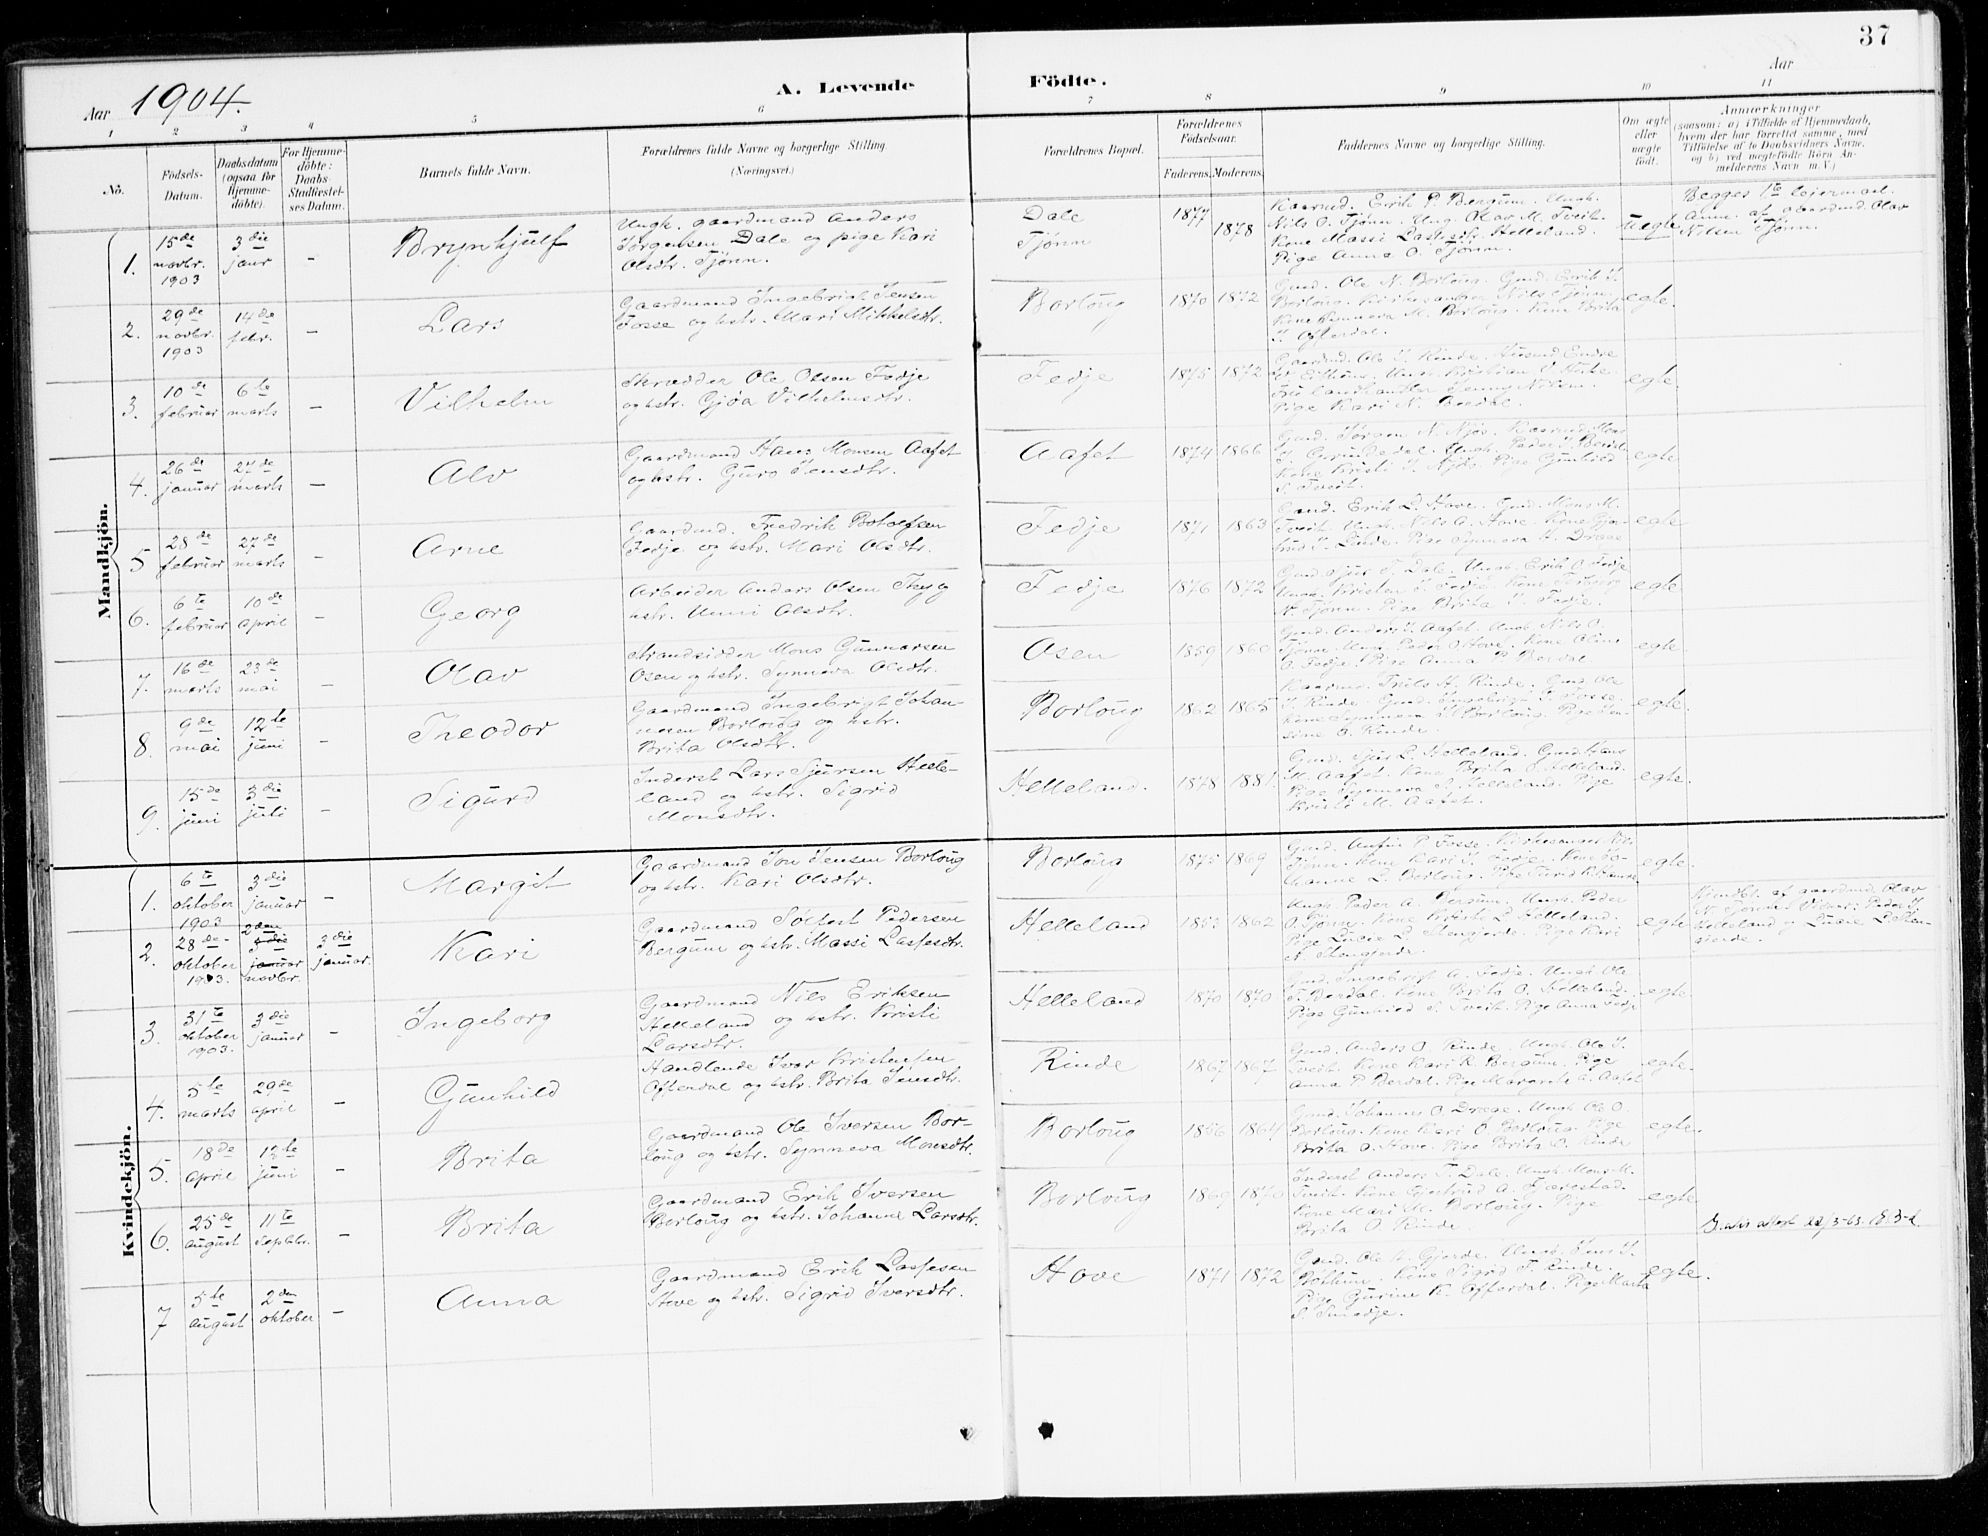 37
Aar 1904.
A. Levende Födte.
Aar
1 2 3 4 5 6 7 8 9 10 11
No.
Födsels-Datum.
Daabsdatum (ogsaa for Hjemmedöbte).
For Hjemmedöbte: Daabs-Stadfæstelses Datum.
Barnets fulde Navn.
Forældrenes fulde Navne og borgerlige Stilling. (Næringsvei.)
Forældrenes Bopæl.
Forældrenes Födselsaar.
Faderens. Moderens.
Faddernes Navne og borgerlige Stilling.
Om ægte eller uægte födt.
Anmærkninger (saasom: a) i Tilfælde af Hjemmedaab, hvem der har forrettet samme, med Tilföielse af to Daabsvidners Navne, og b) ved uægtefödte Börn Anmelderens Navn m. V.)
Mandkjön.
1. 15de novbr. 1903 3die jaur - Brynhjulf
Ungk. gaardmand Anders
Jörgensen Dale og pige Kari
Olsdtr. Tjönn.
Dale Tjönn 1877 1878
Kaarmd. Erik P. Bergum. Ungk.
Nils O. Tjönn. Ung. Olav M. Tveit.
Kone Massi Lassesdtr. Helleland.
Pige Anna O. Tjönn.
Uegte
Begges 1te leiermaal.
Anm. af gaardmd. Olav
Nilsen Tjönn.
2. 29de novbr. 1903 14de febr. - Lars
Gaardmand Ingebrigt Jensen
Fosse og hstr. Mari Mikkelsdtr.
Borloug 1870 1872
Gmd. Ole N. Borloug. Gmd. Eirik I.
Borloug. Kirkesanger Nils Tjönn.
Kone Synneva M. Borloug. Kone Brita
I. Offerdal.
egte.
3. 10de februar 6te marts - Vilhelm
Skrædder Ole Olsen Fedje
og hstr. Gjöa Vilhelmsdtr.
Fedje 1875 1872
Gaardmd. Ole I. Rinde. Husmd. Endre
Pige Kari N. Berdal.
egte.
4. 26de januar 27de marts - Alv
Gaardmand Hans Monsen Aafet
og hstr. Guro Jensdtr.
Aafet 1874 1866
Gmd. Jörgen N. Njös. Kaarmd. Mons
I. Grindedal. Ungk. Peder I. Berdal.
Kone Kristi I. Njös. Pige Gunhild
S. Tveit.
egte.
5 28de februar 27de marts - Arne
Gaardmd. Fredrik Botolfsen
Fedje og hstr. Mari Olsdtr.
Fedje 1871 1863
Gmd. Erik L. Hove. Gmd. Mons M.
Tveit. Ungk. Nils O. Hove. Kone Gjer-
trud I. Linde. Pige Synneva H. Dræge
egte.
6. 6te februar 10de april - Georg
Arbeider Anders Olsen
hstr. Unni Olsdtr.
Fedje 1876 1872
Gmd. Sjur T. Dale. Ungk. Erik O. Fedje
Ungk. Kristen I. Fedje. Kone
N. Tjönn. Pige Brita I. Fedje.
egte.
7. 16de marts 23de mai - Olav
Strandsidder Mons Gunnarsen
Osen og hstr. Synneva Olsdtr.
Osen 1859 1860
Gmd. Anders I. Aafet. Ungk. Nils O.
Tjönn. Ungk. Peder O. Hove. Kone Oline
O. Fedje. Pige Anna P. Berdal
egte.
8. 9de mai 12te juni - Theodor
Gaardmand Ingebrigt Johan-
nesen Borloug og hstr.
Brita Olsdtr.
Borloug 1862 1865
Kaarmd. Truls H. Rinde. Gmd. Ole
I. Rinde. Gmd. Ingebrigt I. Fosse.
Kone Synneva I. Borloug. Pige Jen-
sine O. Rinde.
egte.
9. 15de juni 3die juli - Sigurd
Inderst Lars Sjursen Helle-
land og hstr. Sigrid
Monsdtr.
Helleland. 1878 1881.
Gmd. Sjur L. Helleland. Gmd. Hans
M. Aafet. Kone Brita O. Helleland.
Pige Synneva S. Helleland. Pige
Kristi M. Aafet.
egte.
Kvindekjön.
1. 6te oktober 1903 3die januar - Margit
Gaardmand Jon Jensen Borloug
og hstr. Kari Olsdtr.
Borloug 1875 1869
Gmd. Anfin P. Fosse. Kirkesanger Nils
Tjönn. Kone Kari I. Fedje. Kone Jo-
hanne L. Borloug.
egte.
2. 28de oktober 1903. 2den 3die januar novbr. 3die januar. Kari
Gaardmand Sölfest Pedersen
Bergum og hstr. Massi Lassesdtr.
Helleland 1853 1862
Ungk. Peder A. Bergum. Ungk. Peder
O. Tjönn. Kone Kristi L. Helleland.
Pige Lucie L. Stengjerde. Pige Kari
N. Stengjerde.
egte
Hjmdbt. af gaardmd. Olav
N. Tjönn. Vidner: Peder I.
Helleland og Lucie L. Sten-
gjerde.
3. 31te oktober 1903. 3die januar - Ingeborg
Gaardmand Nils Eriksen
Helleland og hstr. Kristi
Larsdtr.
Helleland 1870 1870
Gmd. Ingebrigt A. Fedje. Ungk. Ole
T. Berdal. Kone Brita O. Helleland.
Pige Gunhild S. Tveit. Pige Anna Fedje
egte.
4. 5te marts 29de april - Gunhild
Handlende Ivar Kristensen
Offerdal og hstr. Brita Jensdtr.
Rinde 1867 1867
Gmd. Anders O. Rinde. Ungk. Ole I.
Tveit. Kone Kari R. Bergum. Pige
Anna P. Berdal. Pige Margrete A. Aafet
egte.
5. 18de april 12te juni - Brita
Gaardmand Ole Iversen Bor-
loug og hstr. Synneva Monsdtr.
Borloug 1856 1864
Gmd. Johannes O. Dræge. Ungk. Ole O
Borloug. Kone Kari O. Borloug. Pige
Brita O. Hove. Pige Brita O. Rinde
egte.
6. 25de august 11te Septbr. - Brita
Gaardmand Erik Iversen
Borloug og hstr. Johanne Larsdtr.
Borloug 1869 1870
Inderst Anders T. Dale. Ungk. Mons M.
Tveit. Kone Gjertrud A. Fjærestad.
Kone Mari M. Borloug. Pige
Brita O. Rinde.
egte
Gratis attest 22/3-63.
7 5te august 2den oktober - Anna
Gaardmand Erik Lassesen
Hove og hstr. Sigrid Iversdtr.
Hove 1871 1872
Gmd. Ole A. Gjerde. Ungk. Jens I.
Bothun. Kone Sigrid T. Rinde.
Pige Gurine K. Offerdal. Pige Marta
S. Smedje.
egte.